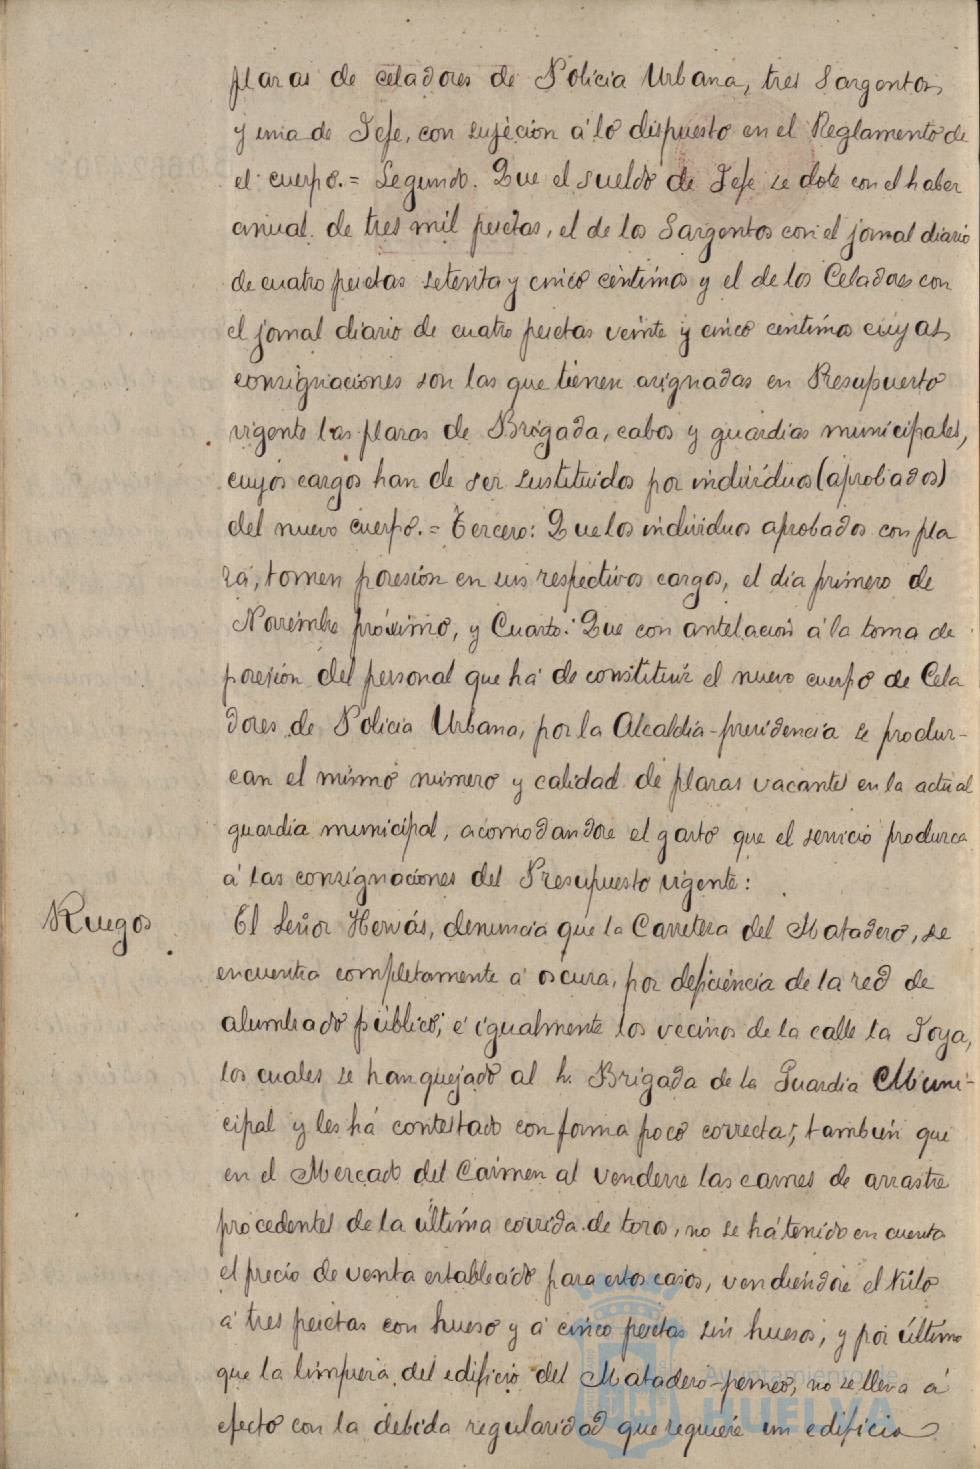 plazas de celadores de Policia Urbana, tres Sargentos,
y una de Jefe, con sujeción á lo dispuesto en el Reglamento de
el cuerpo. = Segundo. Que el sueldo de Jefe se dote con el haber
anual de tres mil pesetas, el de los Sargentos con el jornal diario
de cuatro pesetas setenta y cinco céntimos y el de los Celadores con
el jornal diario de cuatro pesetas veinte y cinco centimos cuyas
consignaciones son las que tienen asignadas en Presupuesto
vigente las plazas de Brigada, cabos y guardias municipales,
cuyos cargos han de ser sustituidos por individuos (aprobados)
del nuevo cuerpo. = Tercero: Que los individuos aprobados con pla
za, tomen posesión en sus respectivos cargos, el dia primero de
Noviembre próximo, y Cuarto: Que con antelación á la toma de
posesión del personal que há de constituir el nuevo cuerpo de Cela
dores de Policia Urbana, por la Alcaldia-presidencia se produz-
can el mismo número y calidad de plazas vacantes en la actual
guardia municipal, acomodandose el gasto que el servicio produzca
á las consignaciones del Presupuesto vigente:
Ruegos
El Señor Hervás, denuncia que la Carretera del Matadero, se
encuentra completamente á oscura, por deficiencia de la red de
alumbrado público; é igualmente los vecinos de la calle la Joya,
los cuales se han quejado al h. Brigada de la Guardia Muni-
cipal y les há contestado con forma poco correcta; también que
en el Mercado del Carmen al venderse las carnes de arrastre
procedentes de la última corrida de toros, no se há tenido en cuenta
el precio de venta establecido para estos casos, vendiéndose el kilo
á tres pesetas con hueso y á cinco pesetas sin hueso; y por último
que la limpieza del edificio del Matadero-perneo, no se lleva á
efecto con la debida regularidad que requiere un edificio
Ayuntamiento de
HUELVA